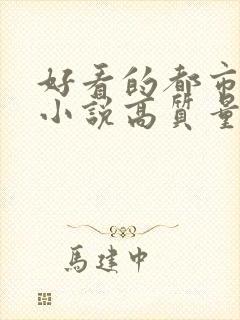 好看的都市
小説高質量
馬建中